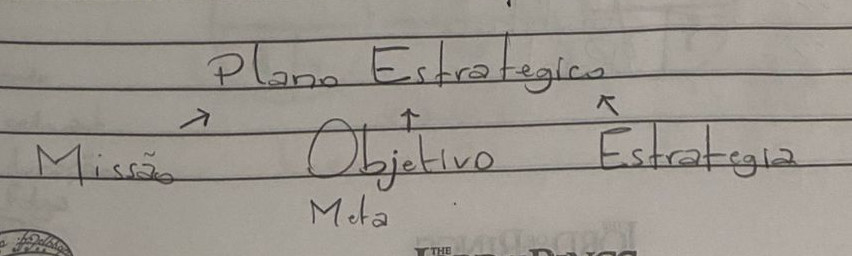 Plano Estrategico
↗ ↑ ↖
Missão Objetivo Estrategia
Meta
THE